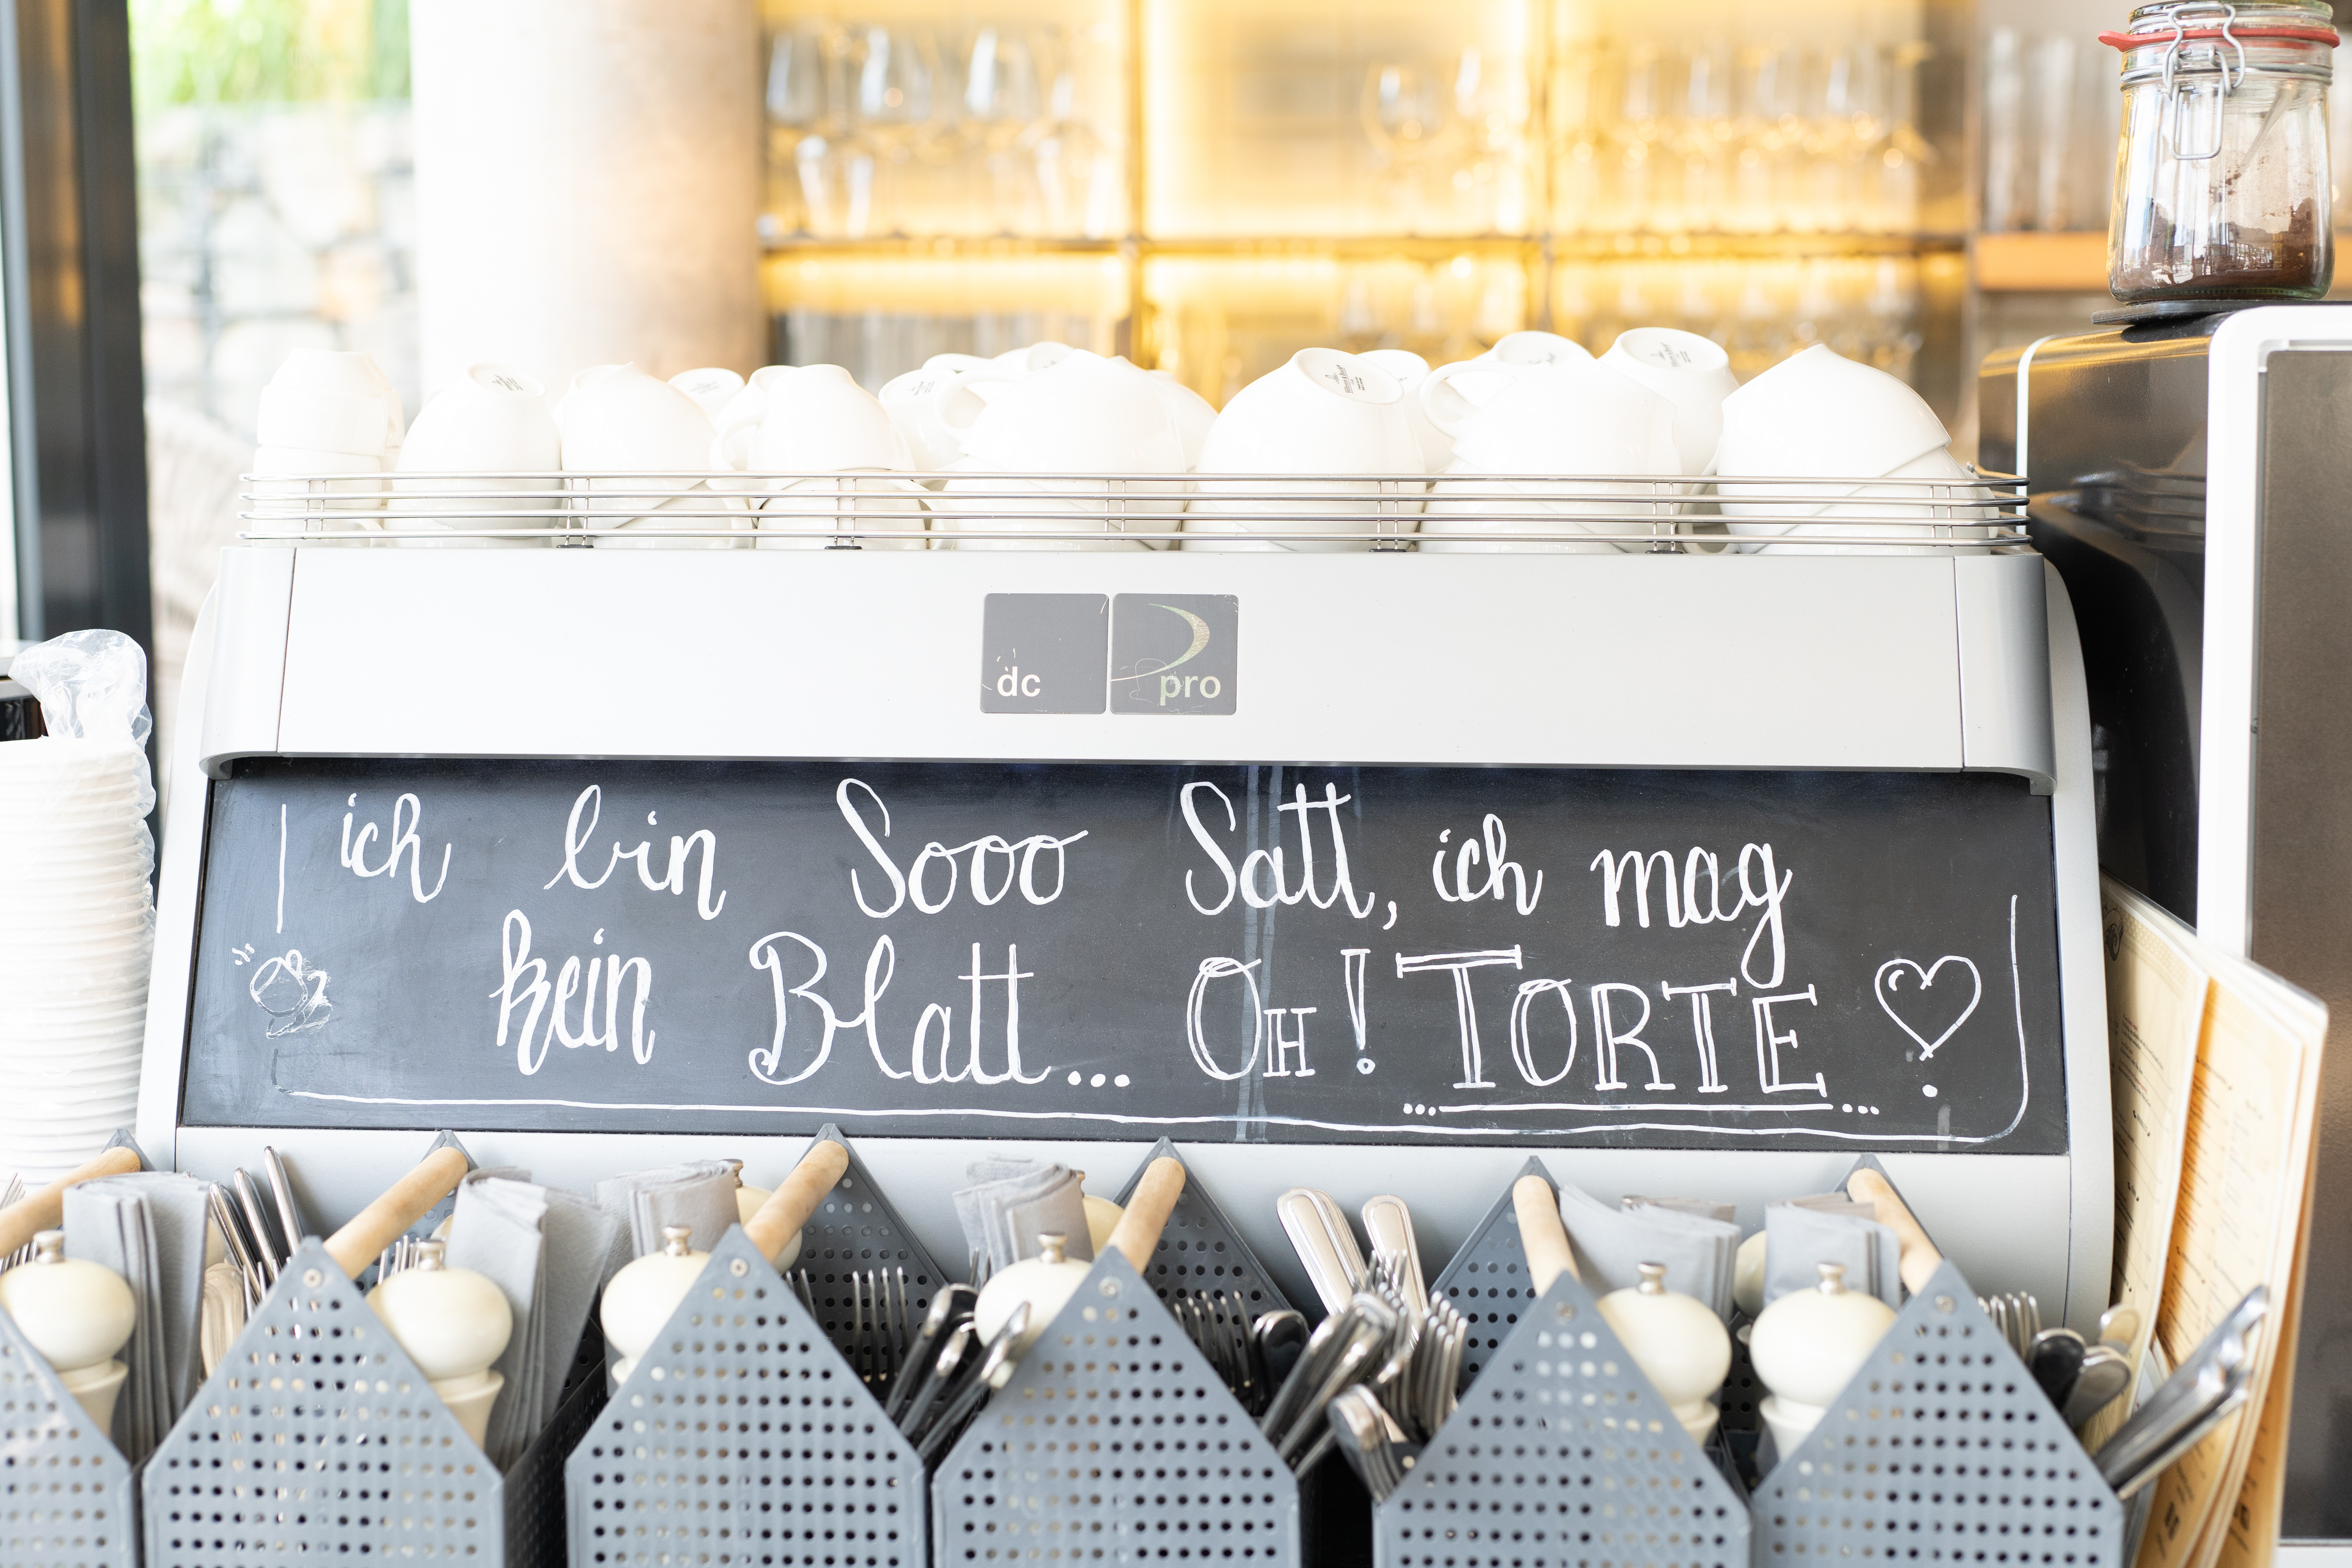 dc pro
ich bin Sooo Satt, ich mag
kein Blatt... OH! TORTE